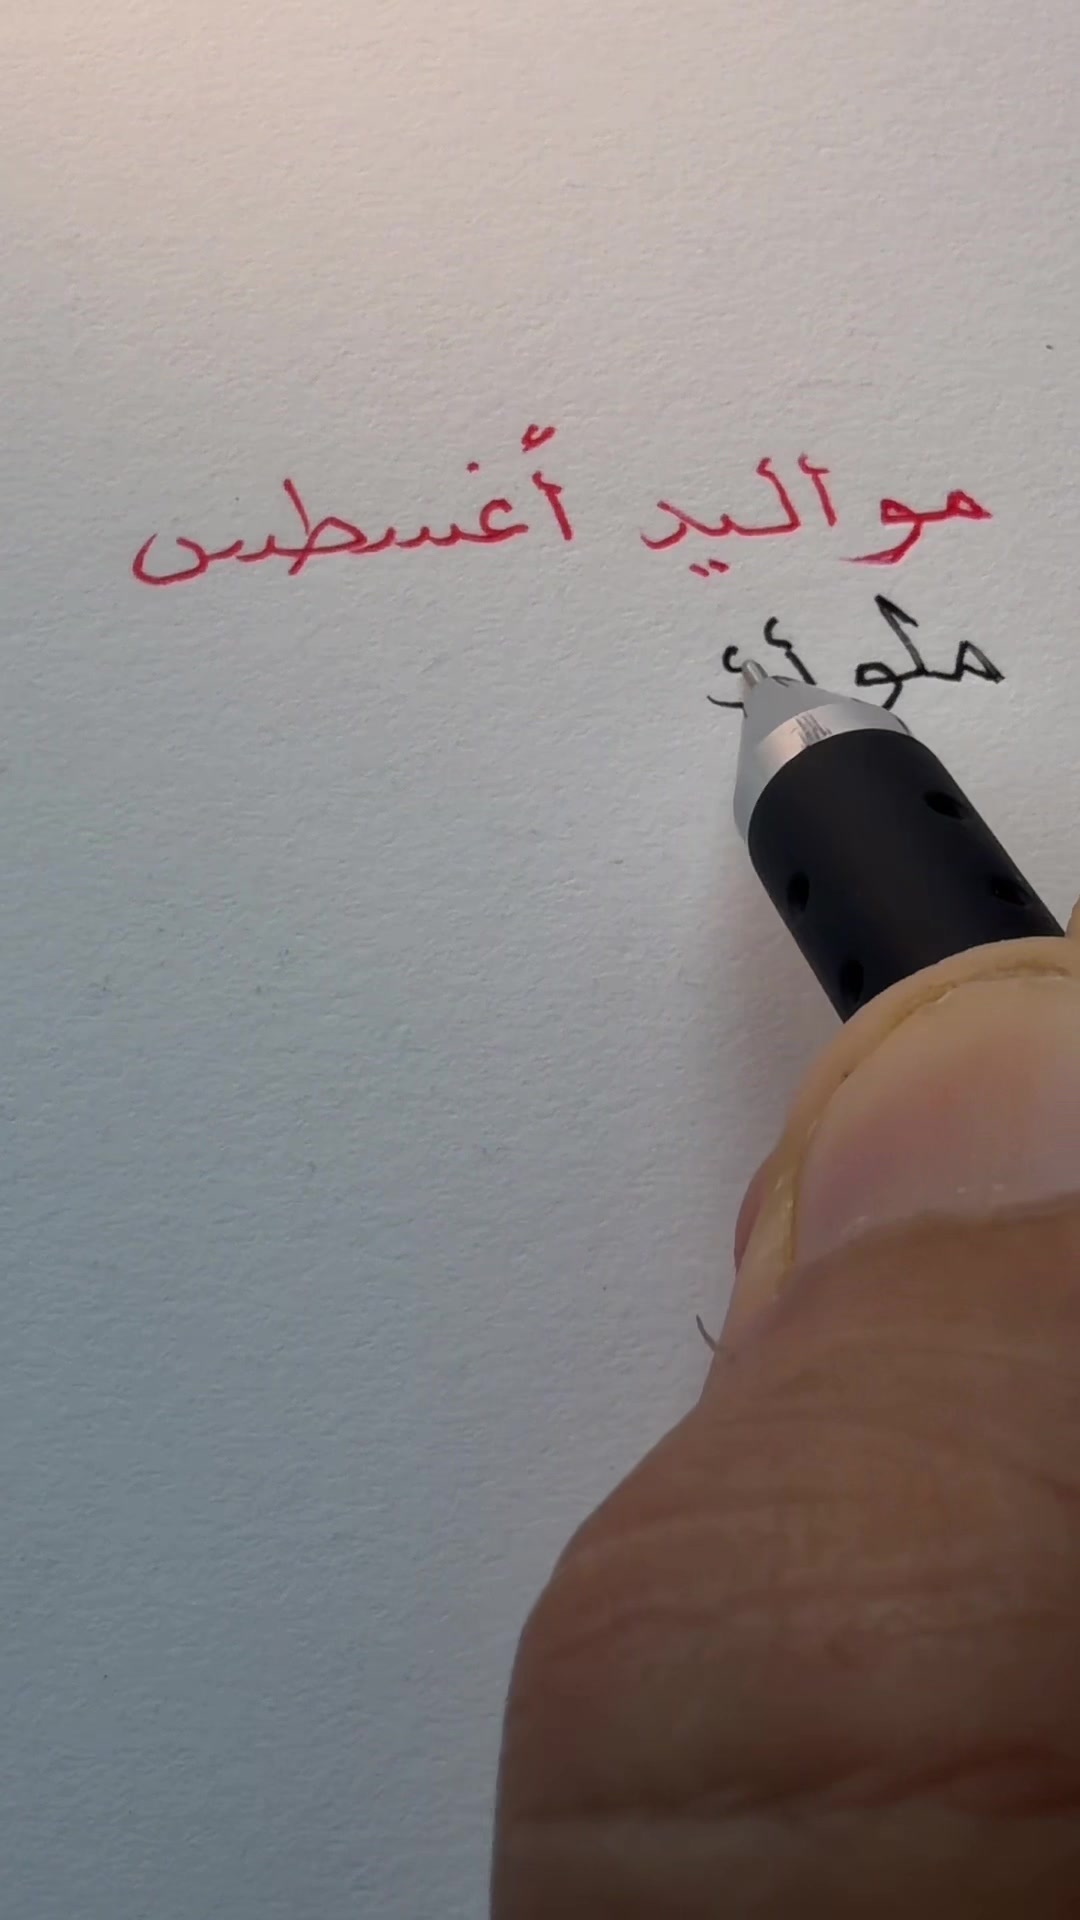 مواليد أغسطس
ملو